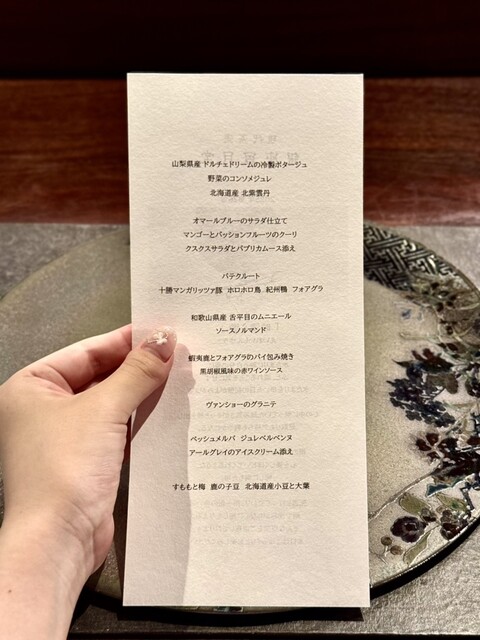 山梨県産 ドルチェドリームの冷製ポタージュ
野菜のコンソメジュレ
北海道産 北紫雲丹
オマールブルーのサラダ仕立て
マンゴーとパッションフルーツのクーリ
クスクスサラダとパプリカムース添え
パテクルート
十勝マンガリッツァ豚 ホロホロ鳥 紀州鴨 フォアグラ
和歌山県産 舌平目のムニエール
ソースノルマンド
蝦夷鹿とフォアグラのパイ包み焼き
黒胡椒風味の赤ワインソース
ヴァンショーのグラニテ
ペッシュメルバ ジュレベルベンヌ
アールグレイのアイスクリーム添え
すももと梅 鹿の子豆 北海道産小豆と大葉